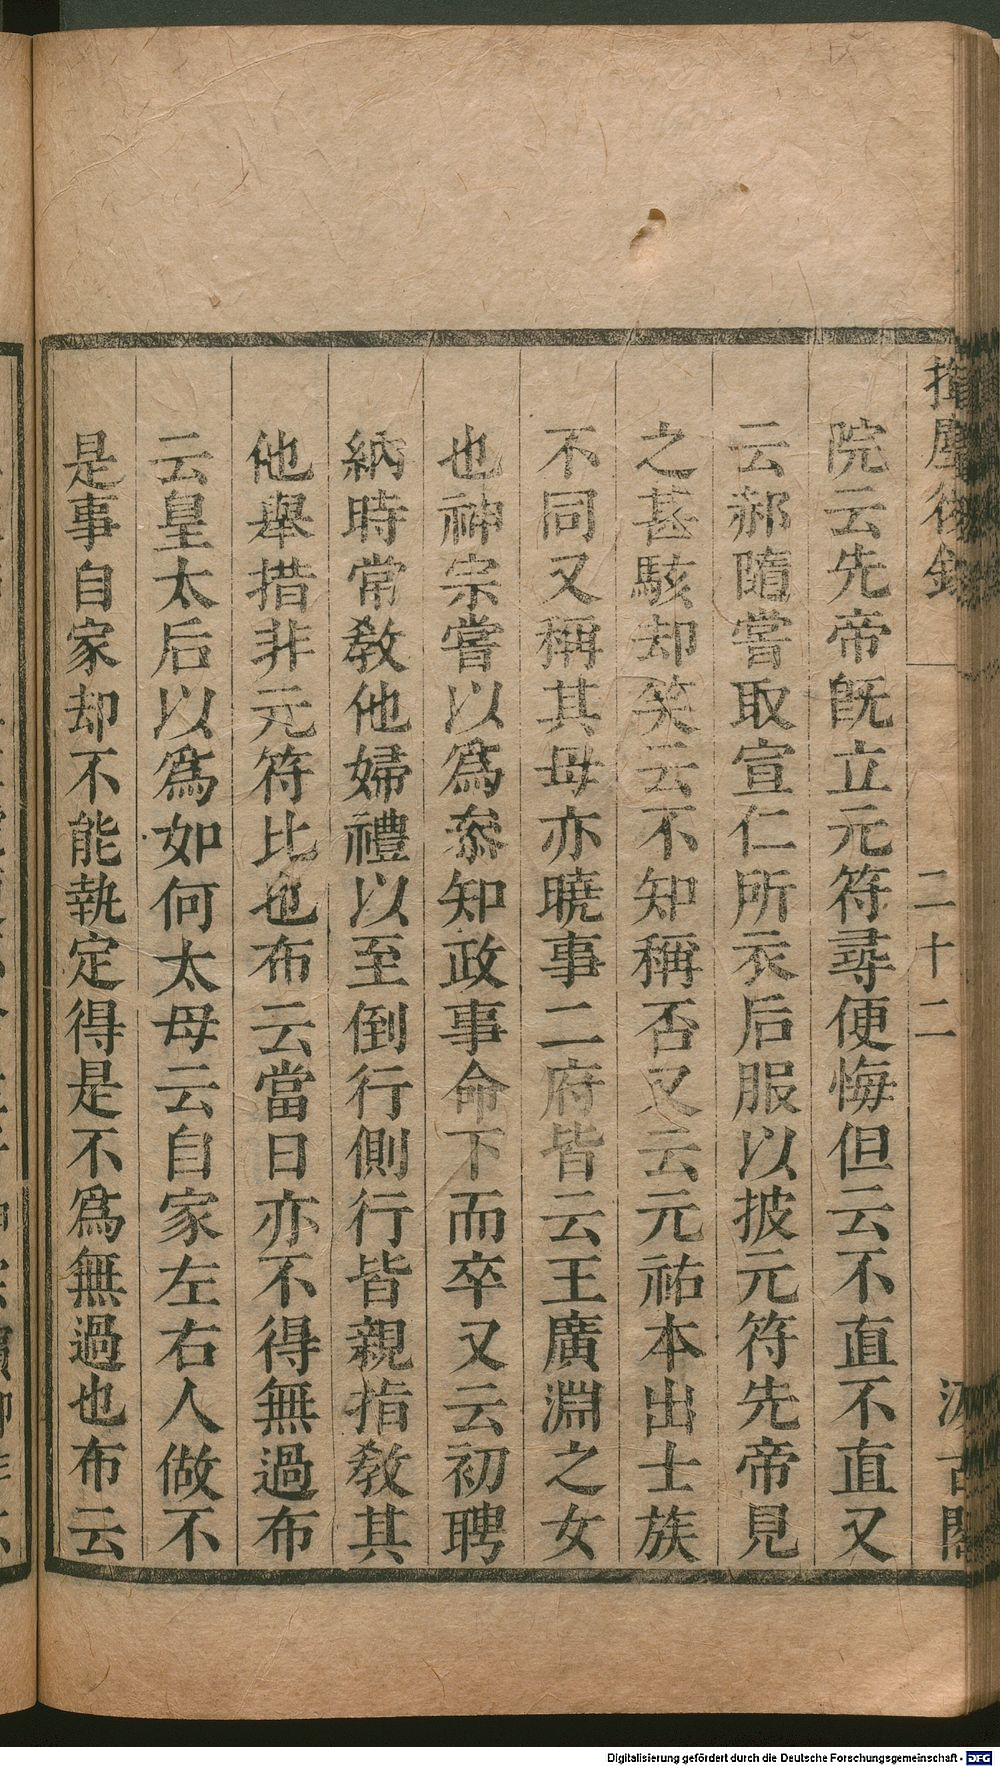 揮麈後錄
二十二
汲古閣
院云先帝旣立元符尋便悔但云不直不直又
云郝隨嘗取宣仁所衣后服以披元符先帝見
之甚駭却笑云不知稱否又云元祐本出士族
不同又稱其母亦曉事二府皆云王廣淵之女
也神宗嘗以爲叅知政事命下而卒又云初聘
納時常敎他婦禮以至倒行側行皆親指敎其
他舉措非元符比也布云當日亦不得無過布
云皇太后以爲如何太母云自家左右人做不
是事自家却不能執定得是不爲無過也布云
Digitalisierung gefördert durch die Deutsche Forschungsgemeinschaft - DFG